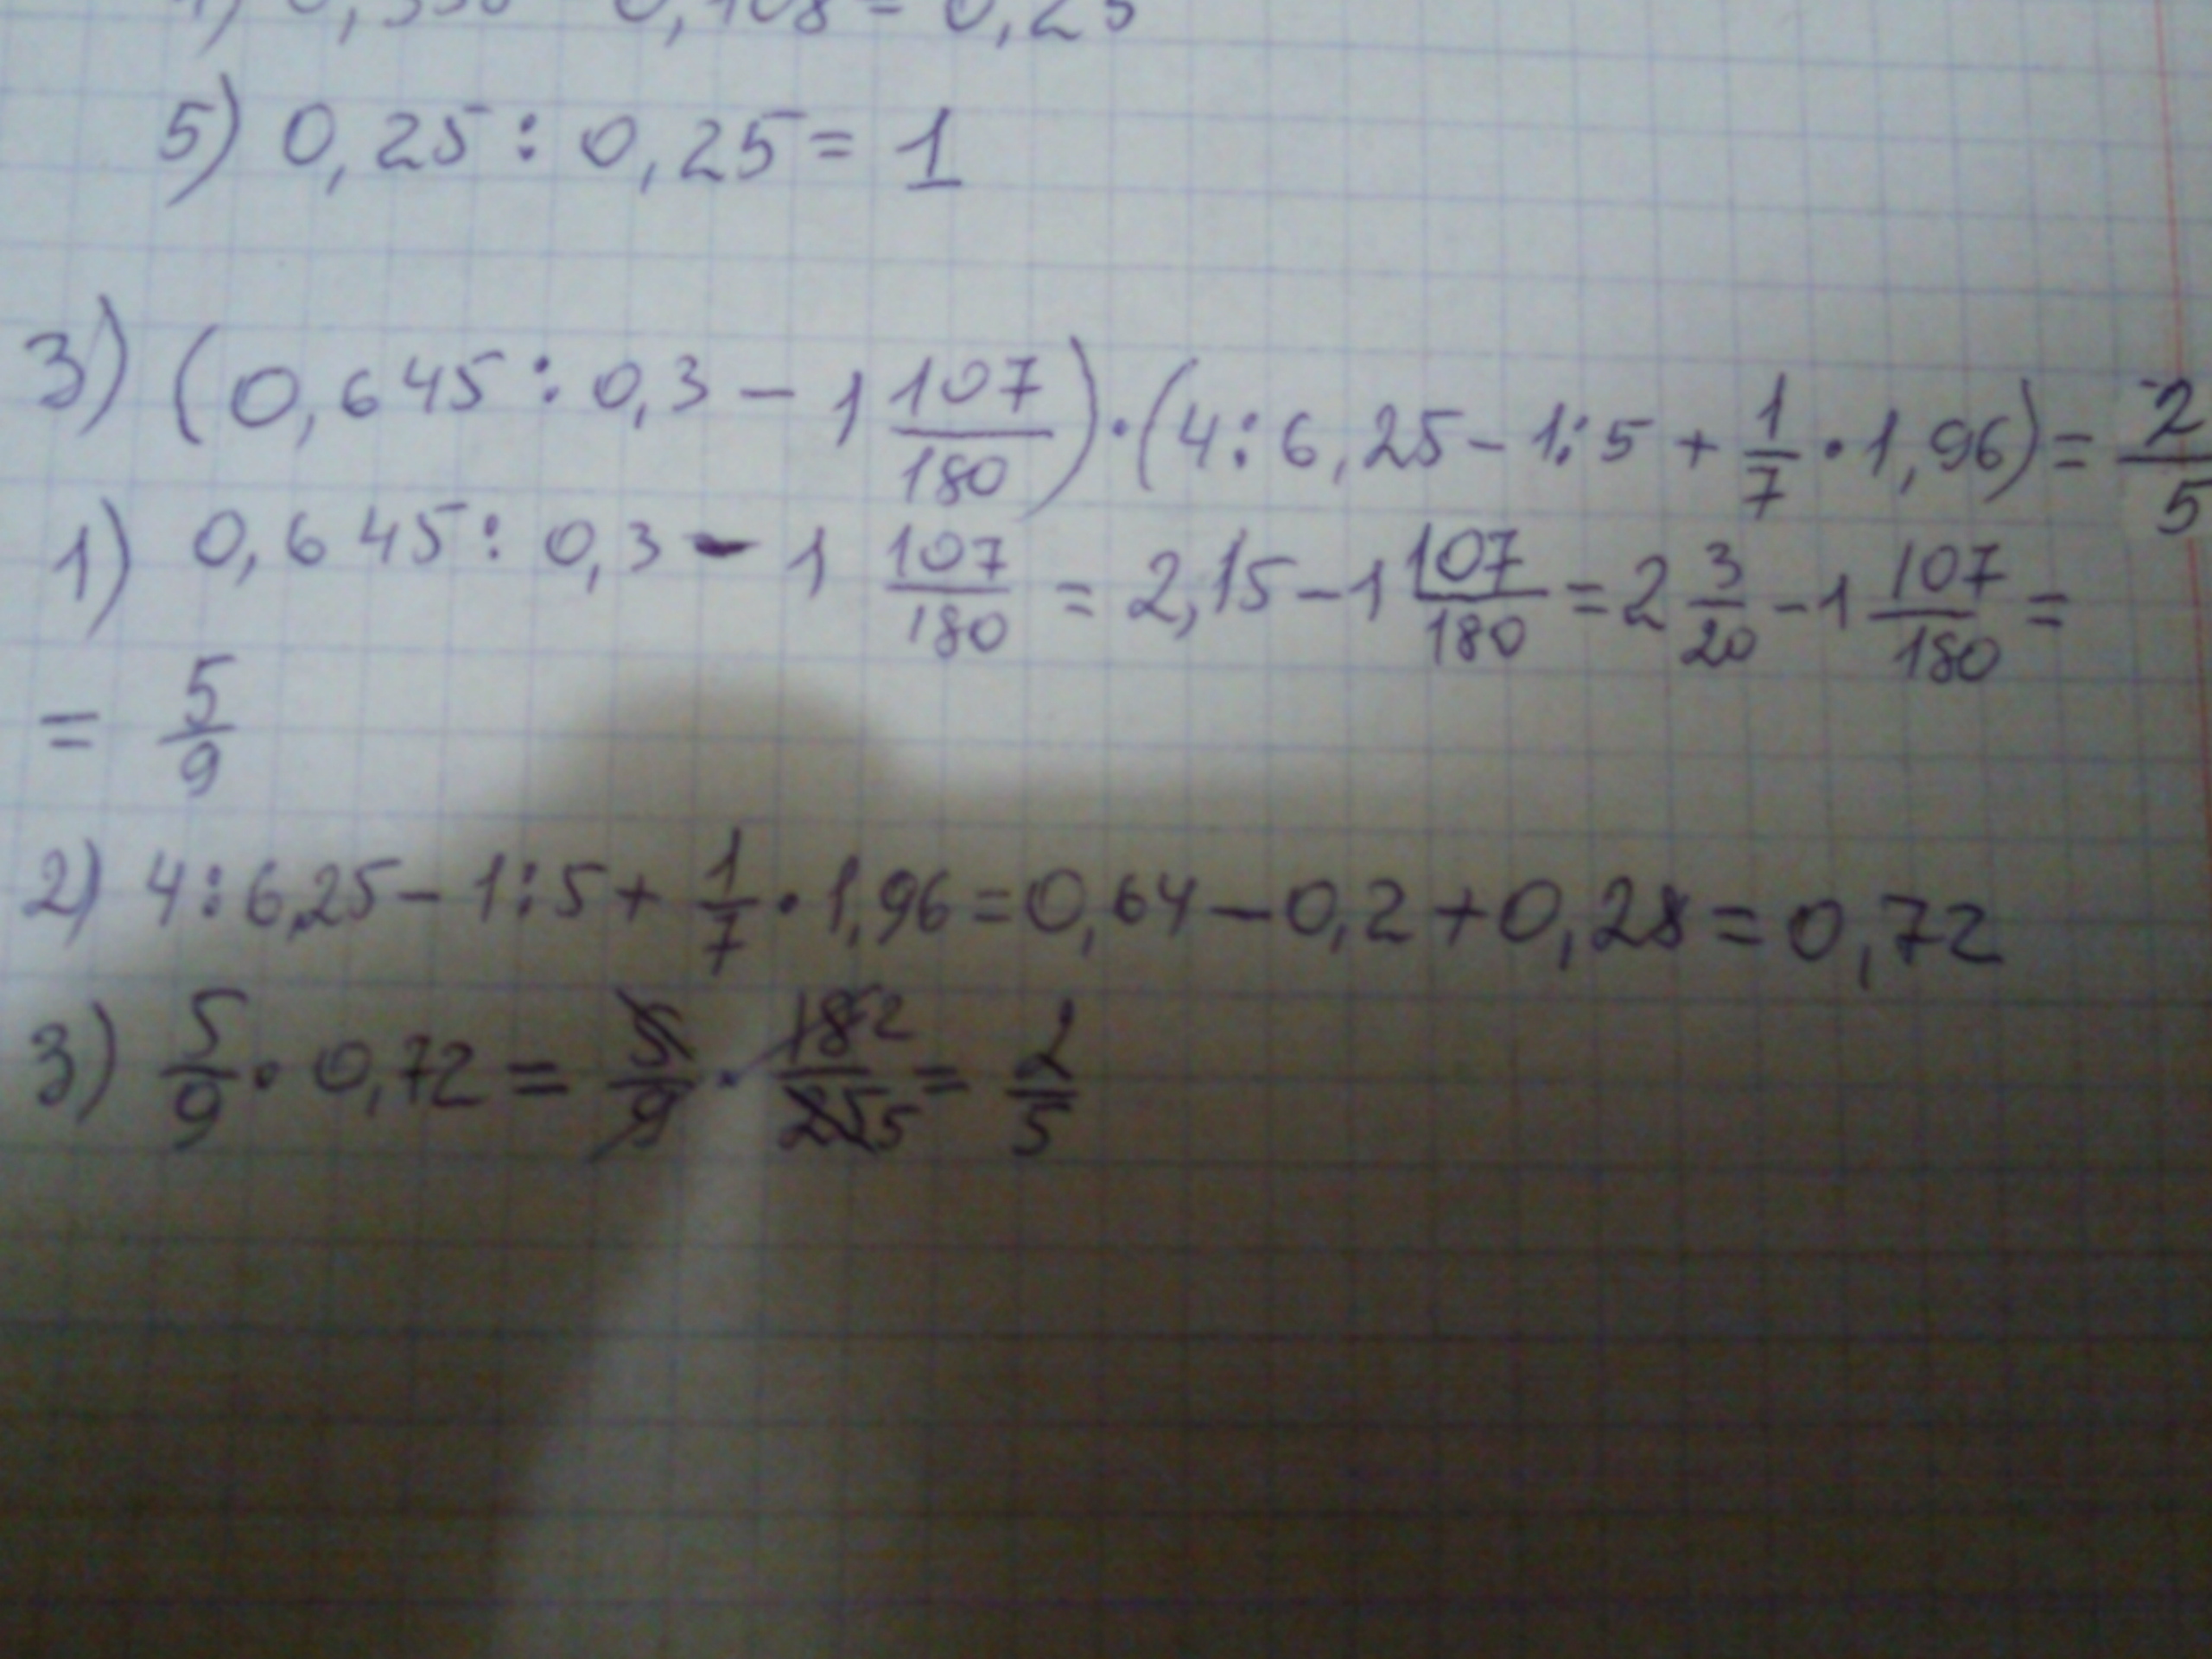 5) 0,25 : 0,25 = 1
3) (0,645 : 0,3 - 1 107/180) · (4 : 6,25 - 1 : 5 + 1/7 · 1,96) = 2/5
1) 0,645 : 0,3 - 1 107/180 = 2,15 - 1 107/180 = 2 3/20 - 1 107/180 =
= 5/9
2) 4 : 6,25 - 1 : 5 + 1/7 · 1,96 = 0,64 - 0,2 + 0,28 = 0,72
3) 5/9 · 0,72 = 5/9 · 18 2/25 5 = 2/5